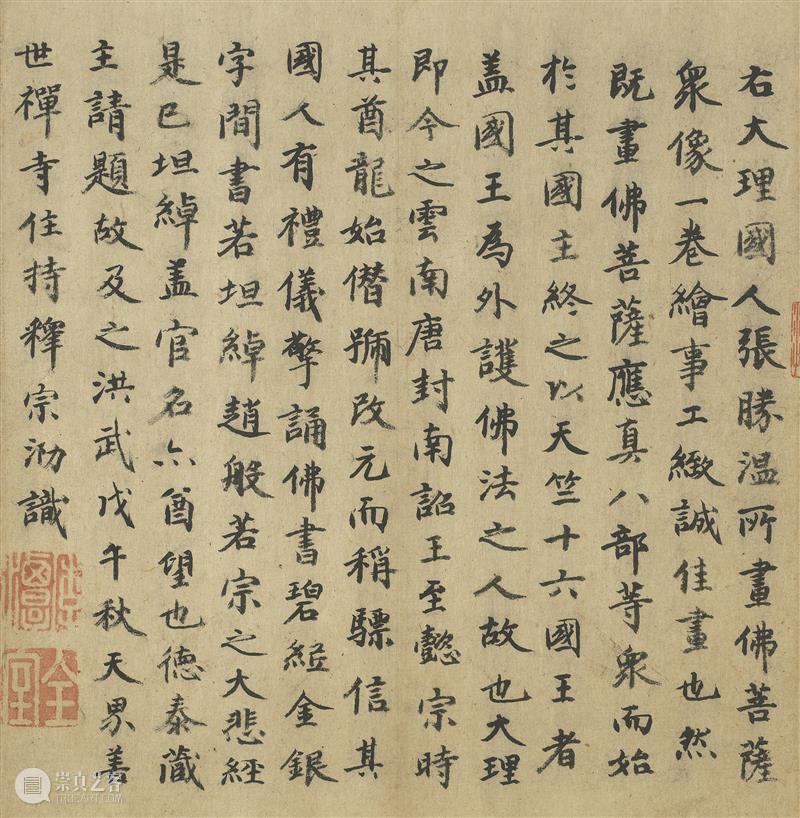 右大理國人張勝溫所畫佛菩薩
衆像一卷繪事工緻誠佳畫也然
既畫佛菩薩應真八部等衆而始
於其國主終之以天竺十六國王者
盖國王為外護佛法之人故也大理
即今之雲南唐封南詔王至懿宗時
其酋龍始僭號改元而稱驃信其
國人有禮儀擎誦佛書碧紙金銀
字間書若坦綽趙般若宗之大悲經
是已坦綽盖官名六酋望也德泰藏
主請題故及之洪武戊午秋天界善
世禪寺住持釋宗泐識
全室
崇真艺客
TRUEART.COM